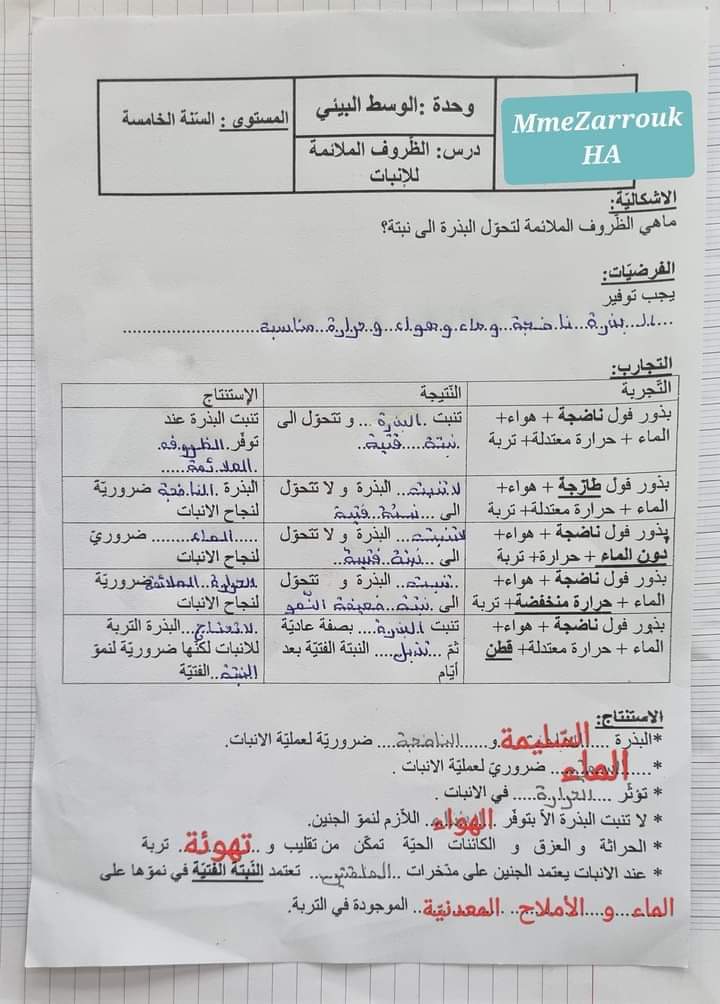 المستوى : السنة الخامسة
وحدة :الوسط البيئي
درس: الظّروف الملائمة
للإنبات
MmeZarrouk
HA
الاشكاليّة:
ماهي الظّروف الملائمة لتحوّل البذرة الى نبتة؟
الفرضيّات:
يجب توفير
...ا.لـ..بذرة..نا.ضجة...و.ماء.و.هواء..و.حرارة..مناسبة...........................
التجارب:
التّجربة
النّتيجة
الإستنتاج
بذور فول ناضجة + هواء+
الماء + حرارة معتدلة + تربة
تنبت .البذرة ... و تتحوّل الى
.نبتة.....فتية..
تنبت البذرة عند
توفّر.الظروف
.الملائمة.....
بذور فول طازجة + هواء+
الماء + حرارة معتدلة+ تربة
لا تنبت.. البذرة و لا تتحوّل
الى ...نبتة..فتية
البذرة .النا.ضجة ضروريّة
لنجاح الانبات
بذور فول ناضجة + هواء+
دون الماء + حرارة+ تربة
لا تنبت... البذرة و لا تتحوّل
الى ...نبتة..فتية..
.....الماء......... ضروريّ
لنجاح الانبات
بذور فول ناضجة + هواء+
الماء + حرارة منخفضة+ تربة
..تنبت.. البذرة و تتحوّل
الى .نبتة..ضعيفة النّمو
الحرارة..الملائمة ضروريّة
لنجاح الانبات
بذور فول ناضجة + هواء+
الماء + حرارة معتدلة+ قطن
تنبت .البذرة.... بصفة عاديّة
ثمّ ...تذبل.... النبتة الفتيّة بعد
أيّام
.لا تحتاج...البذرة التربة
للانبات لكنّها ضروريّة لنموّ
النبتة..الفتيّة
الاستنتاج:
*البذرة السّليمة و......الناضجة.... ضروريّة لعمليّة الانبات.
* الماء ضروريّ لعمليّة الانبات .
* تؤثّر ....الحرارة..... في الانبات .
* لا تنبت البذرة الاّ بتوفّر الهواء. اللاّزم لنموّ الجنين.
* الحراثة و العزق و الكائنات الحيّة تمكّن من تقليب و ..تهوئة. تربة
* عند الانبات يعتمد الجنين على مدّخرات ..الفلقتين.. تعتمد النّبتة الفتيّة في نموّها على
الماء....و....الأملاح... المعدنيّة.. الموجودة في التربة.